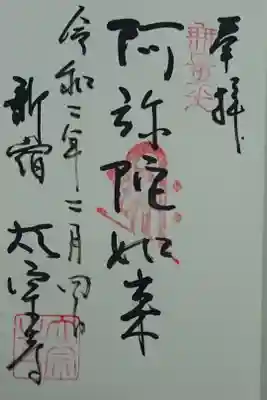 奉拝
無量光
阿弥陀如来
令和二年二月四日
新宿 太宗寺